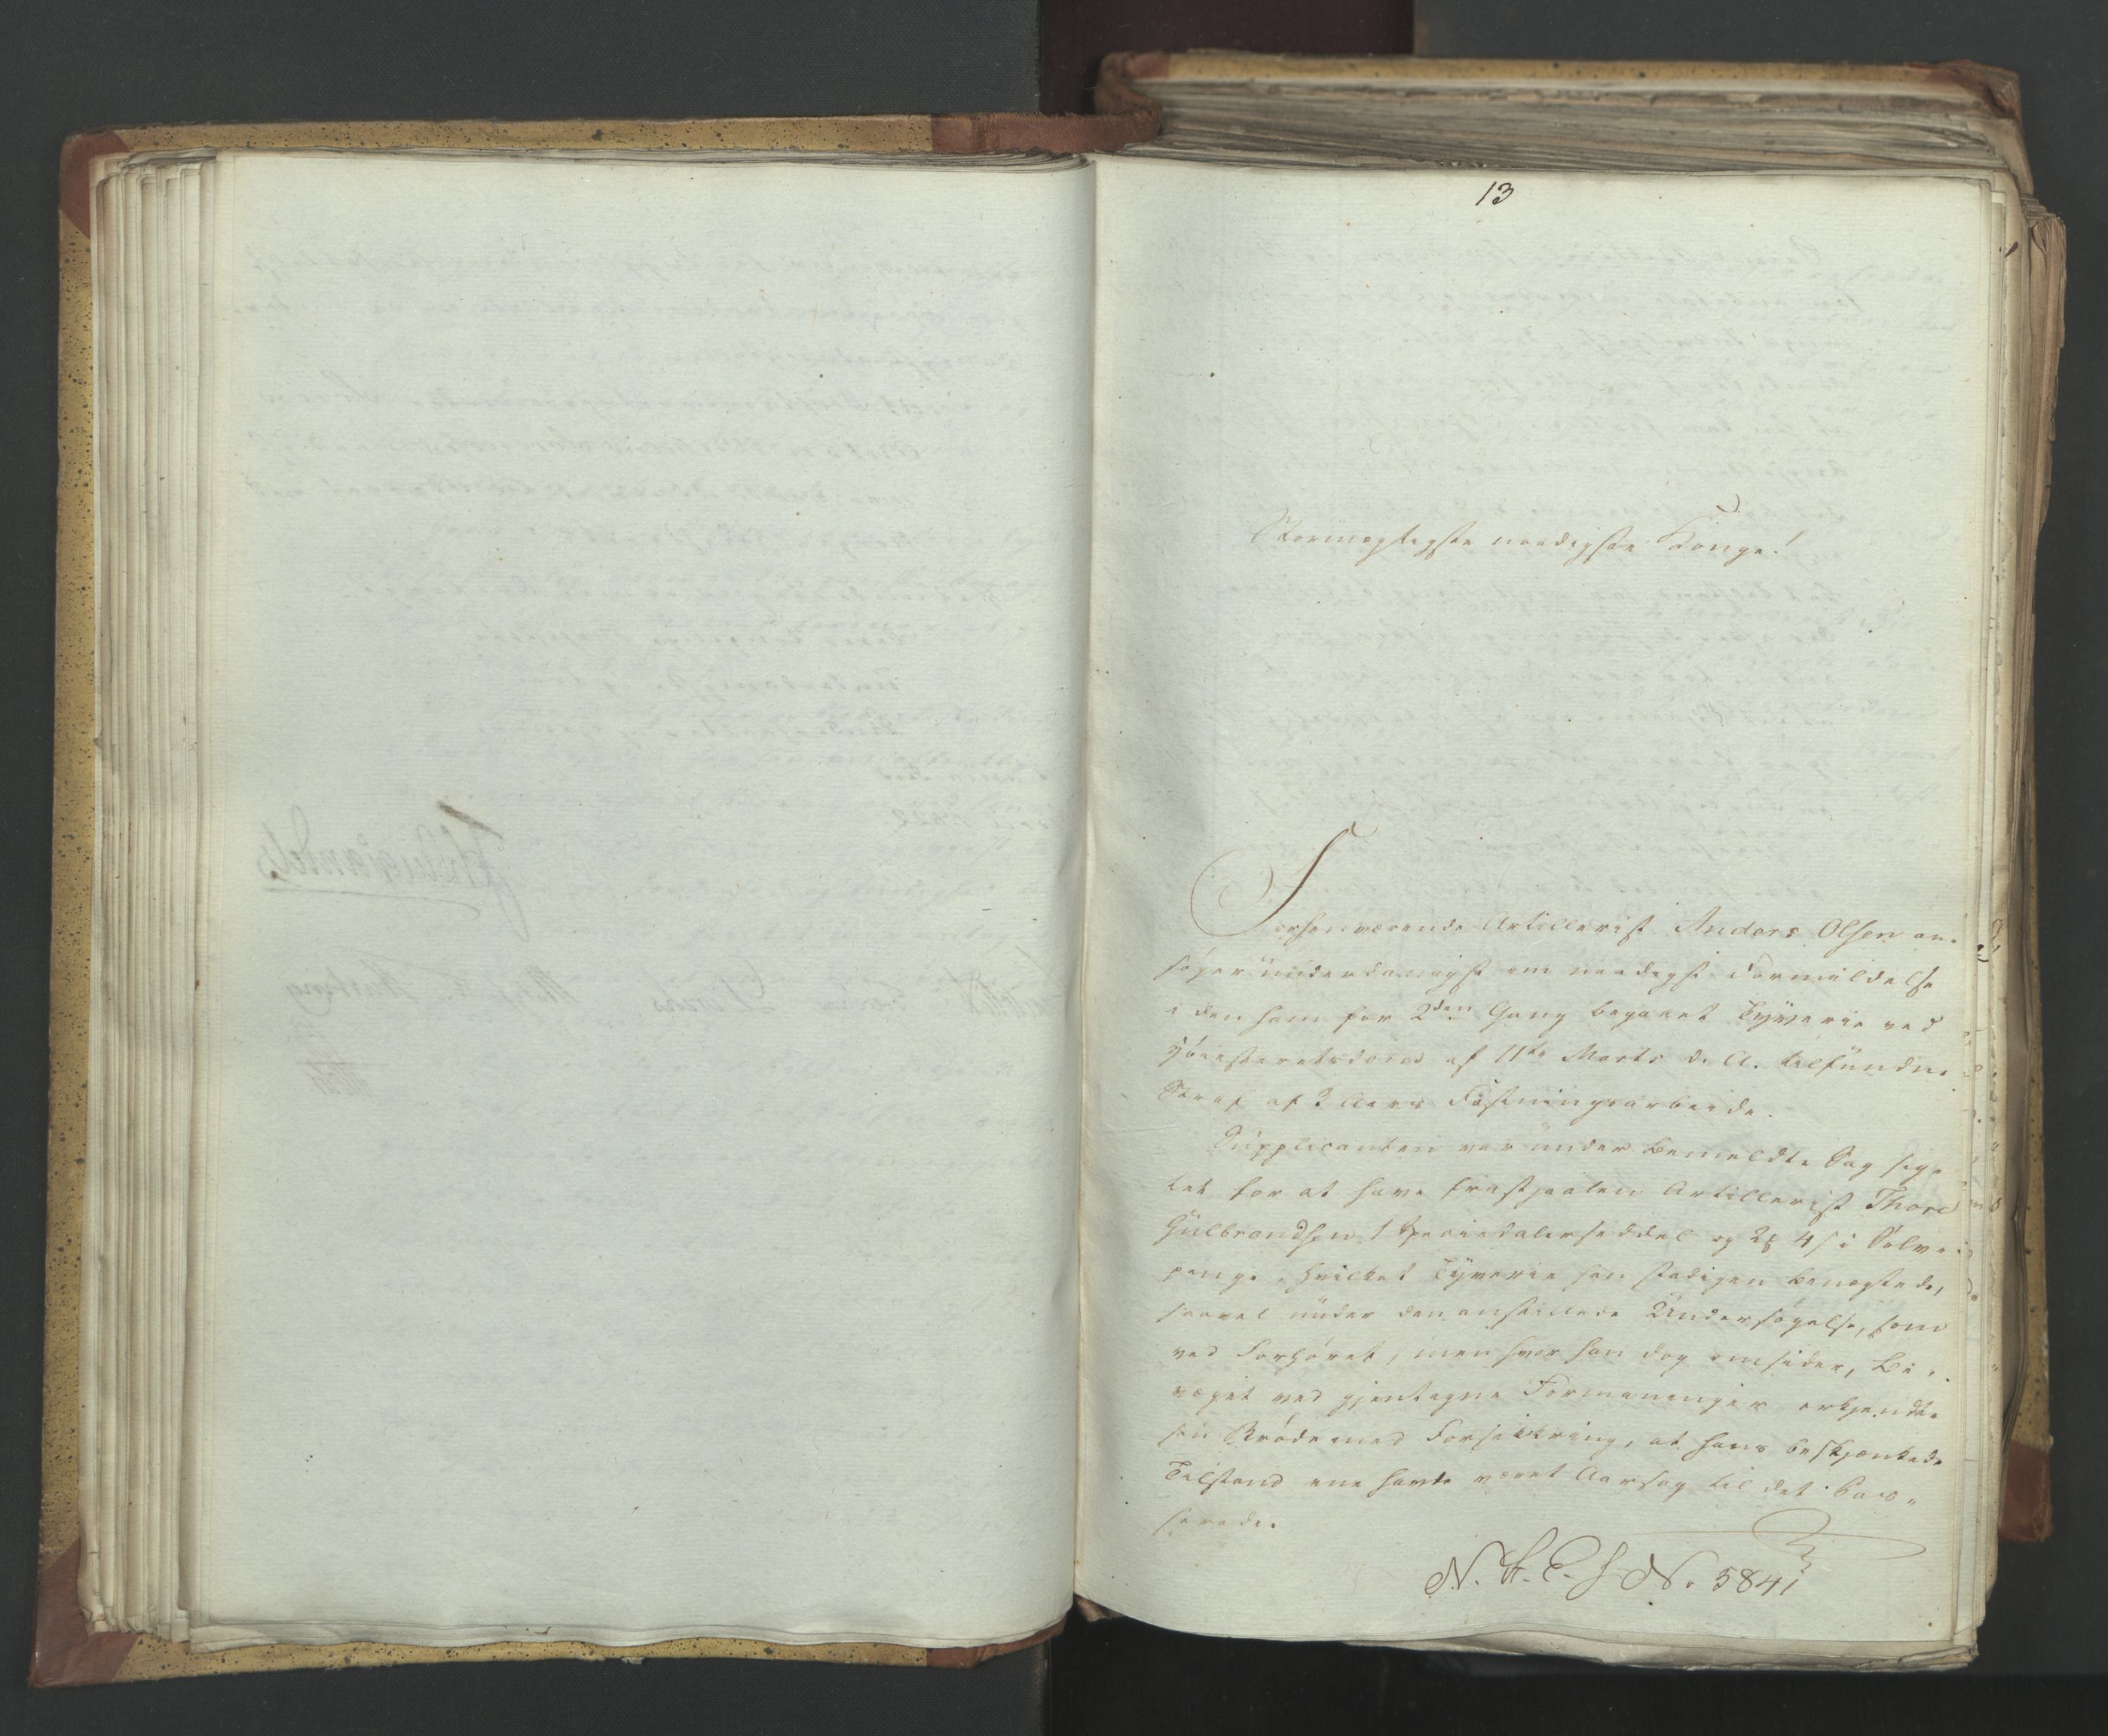 13
Stormægtigste naadigste Konge!
Forhenværende Artillerist Anders Olsen an-
søger underdanigst om naadigst Formildelse
i den ham for 2den Gang begaaet Tyverie ved
Høiesteretsdom af 11te Marts d. A. tilfundne
Straf af 3 Aars Fæstningsarbeide.
Supplicanten var under bemeldte Sag sig-
tet for at have frastjaalen Artillerist Thore
Gulbrandsen 1 Speciedalerseddel og 2 4 s i Sølv-
penge, hvilket Tyverie han stadigen benægtede,
saavel under den anstillede Undersøgelse, som
ved Forhøret, men hvor han dog omsider, be-
væget ved gjentagne Formaninger erkjendte
sin Brøde med Forsikkring, at hans beskjenkede
Tilstand ene havde været Aarsag til det Pas-
serede.
N. 5841